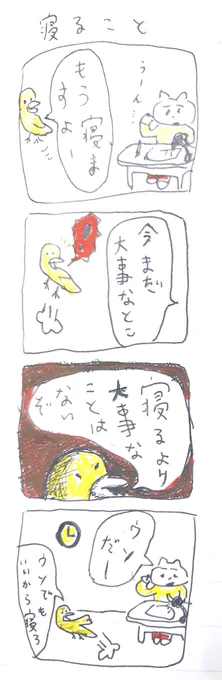 寝ること
うーん…
もう寝ま
すよー
今まだ
大事なとこ
寝るより
大事な
ことは
ないぞ
ウソ
だー
ウソでも
いいから寝ろ